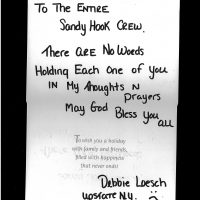 To The Entire
Sandy Hook Crew.
There are No Words
Holding Each One of You
IN My Thoughts N
Prayers
May God Bless You
all
To wish you a holiday
with family and friends,
filled with happiness
that never ends!
Debbie Loesch
upstate N.Y.